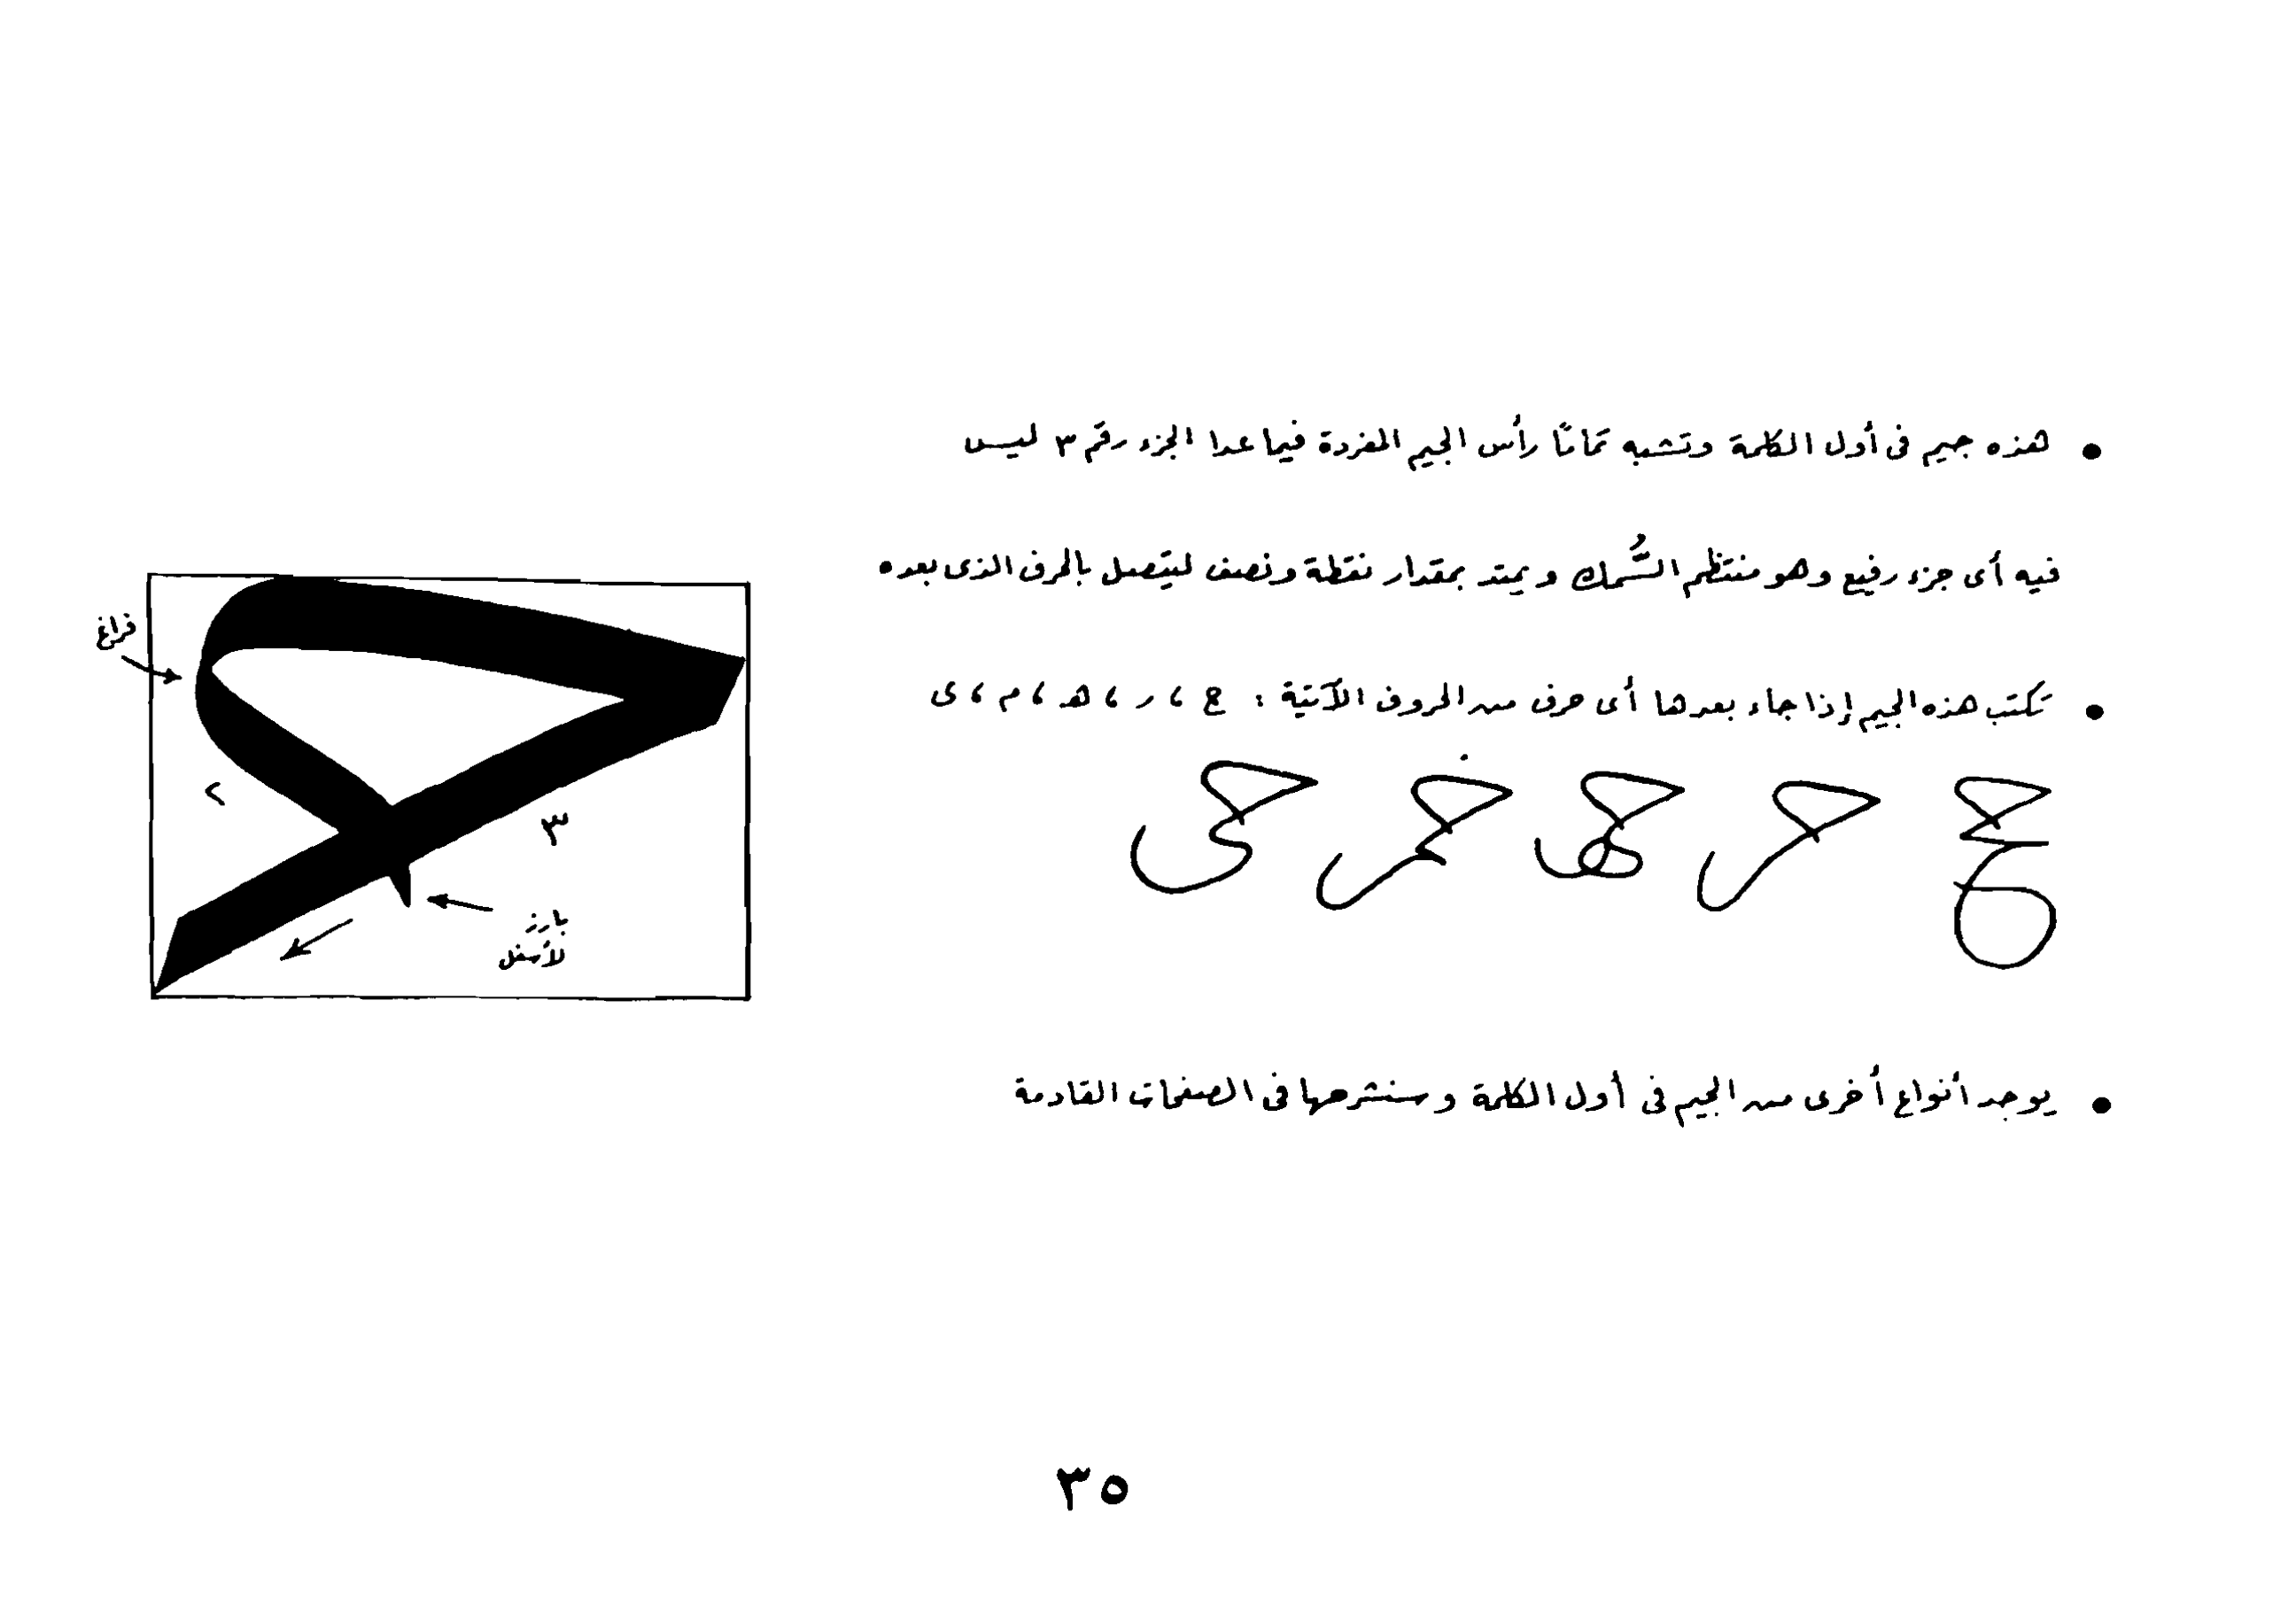 • هذه جيم فى أول الكلمة وتشبه تمامًا رأس الجيم المفردة فيما عدا الجزء رقم ٣ ليس
فيه أى جزء رفيع وهو منتظم السُّمك ويمتد بمقدار نقطة ونصف ليتصل بالحرف الذى بعده
• تكتب هذه الجيم إذا جاء بعدها أى حرف من الحروف الآتية : ج ، ر ، هـ ، م ، ى
فراغ
٢
٣
بارز
لأسفل
• يوجد أنواع أخرى من الجيم فى أول الكلمة وسنشرحها فى الصفحات القادمة
٣٥